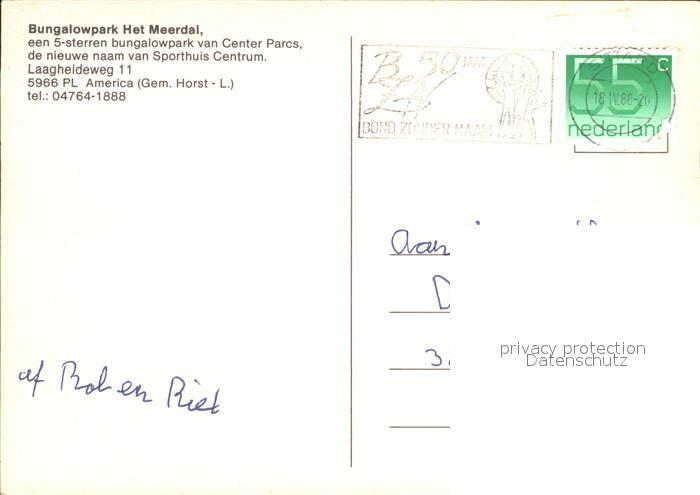 Bungalowpark Het Meerdal,
een 5-sterren bungalowpark van Center Parcs,
de nieuwe naam van Sporthuis Centrum.
Laagheideweg 11
5966 PL America (Gem. Horst - L.)
tel.: 04764-1888
BZN 50 JAAR
BOND ZONDER NAAM
55 c
18.IV.88-20
nederland
Aan
D
3
privacy protection
Datenschutz
af Rob en Riet